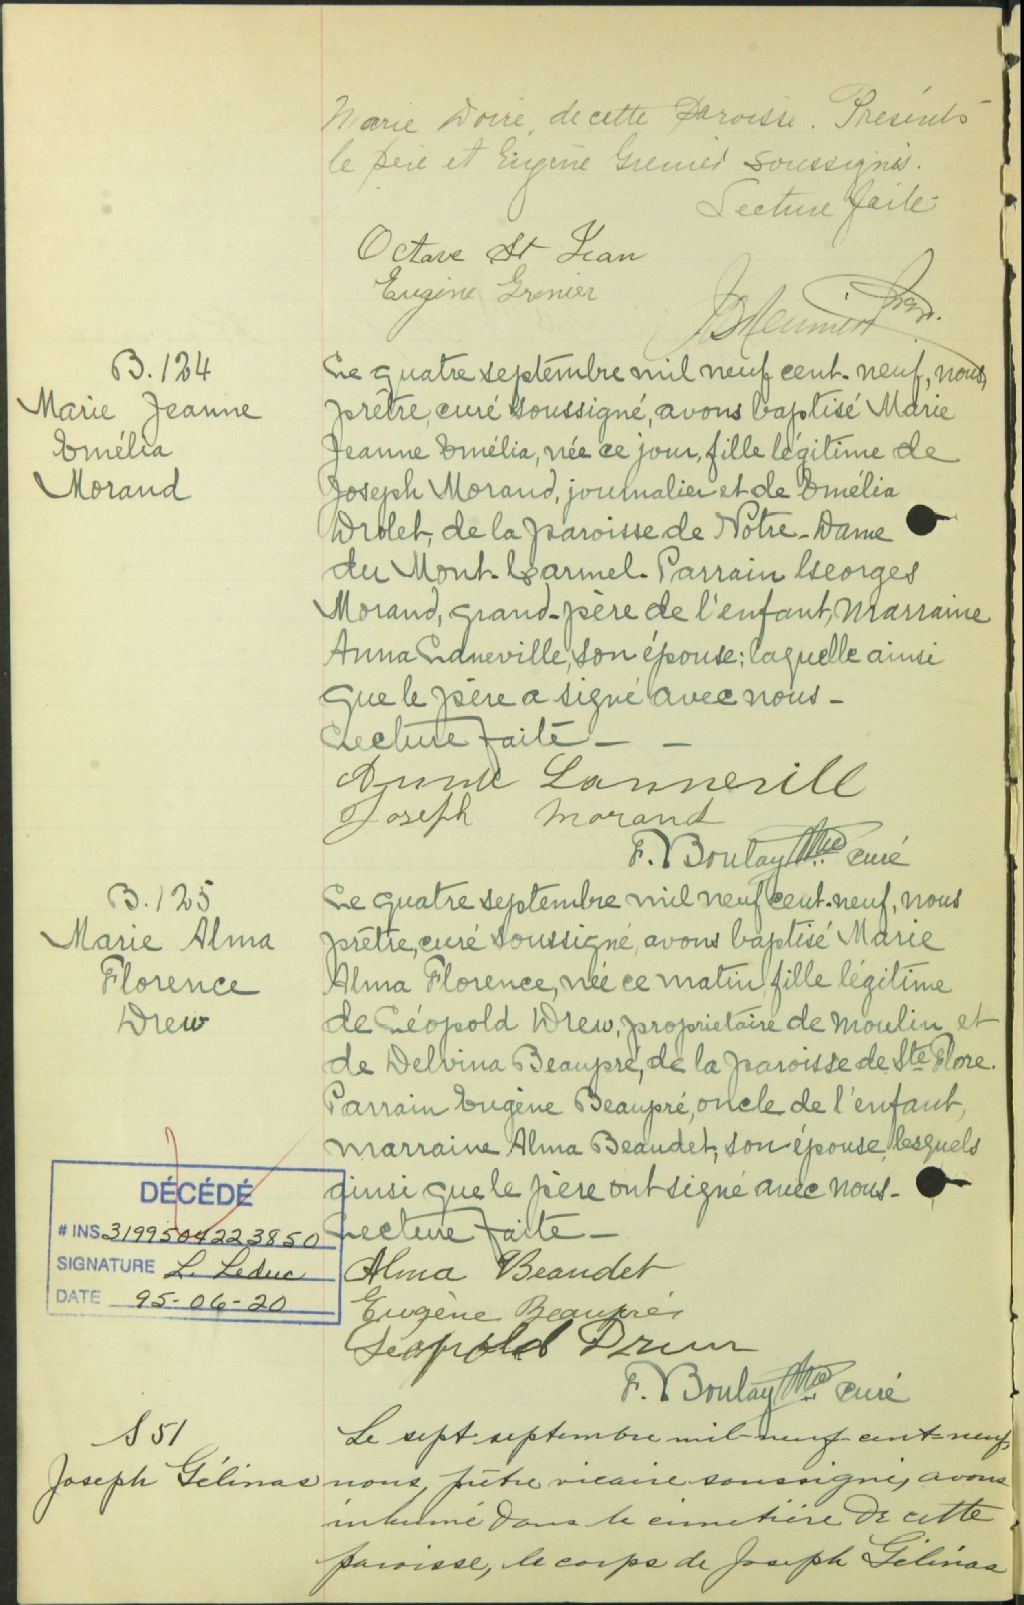 Marie Doire, de cette Paroisse. Présents
le père et Eugène Grenier soussignés.
Lecture faite
Octave St Jean
Eugène Grenier
B. 124
Marie Jeanne
Emélia
Morand
Le quatre septembre mil neuf cent-neuf, nous,
prêtre, curé soussigné, avons baptisé Marie
Jeanne Emélia, née ce jour, fille légitime de
Joseph Morand, journalier et de Emélia
Drolet, de la paroisse de Notre-Dame
du Mont-Carmel. Parrain Georges
Morand, grand-père de l'enfant, marraine
Anna Laneville, son épouse; laquelle ainsi
que le père a signé avec nous -
Lecture faite - -
Lannevill
Joseph Morand
F. Boulay Ptre curé
B. 125
Marie Alma
Florence
Drew
Le quatre septembre mil neuf cent-neuf, nous
prêtre, curé soussigné, avons baptisé Marie
Alma Florence, née ce matin, fille légitime
de Léopold Drew, propriétaire de moulin et
de Delvina Beaupré, de la paroisse de Ste Flore.
Parrain Eugène Beaupré, oncle de l'enfant,
marraine Alma Beaudet, son épouse, lesquels
ainsi que le père ont signé avec nous -
Lecture faite -
DÉCÉDÉ
# INS 3199504223850
SIGNATURE L. Leduc
DATE 95-06-20
Alma Beaudet
Eugène Beaupré
Leopold Drew
F. Boulay Ptre curé
S 51
Joseph Gélinas
Le sept septembre mil-neuf-cent-neuf,
nous, prêtre vicaire soussigné, avons
inhumé dans le cimetière de cette
paroisse, le corps de Joseph Gélinas